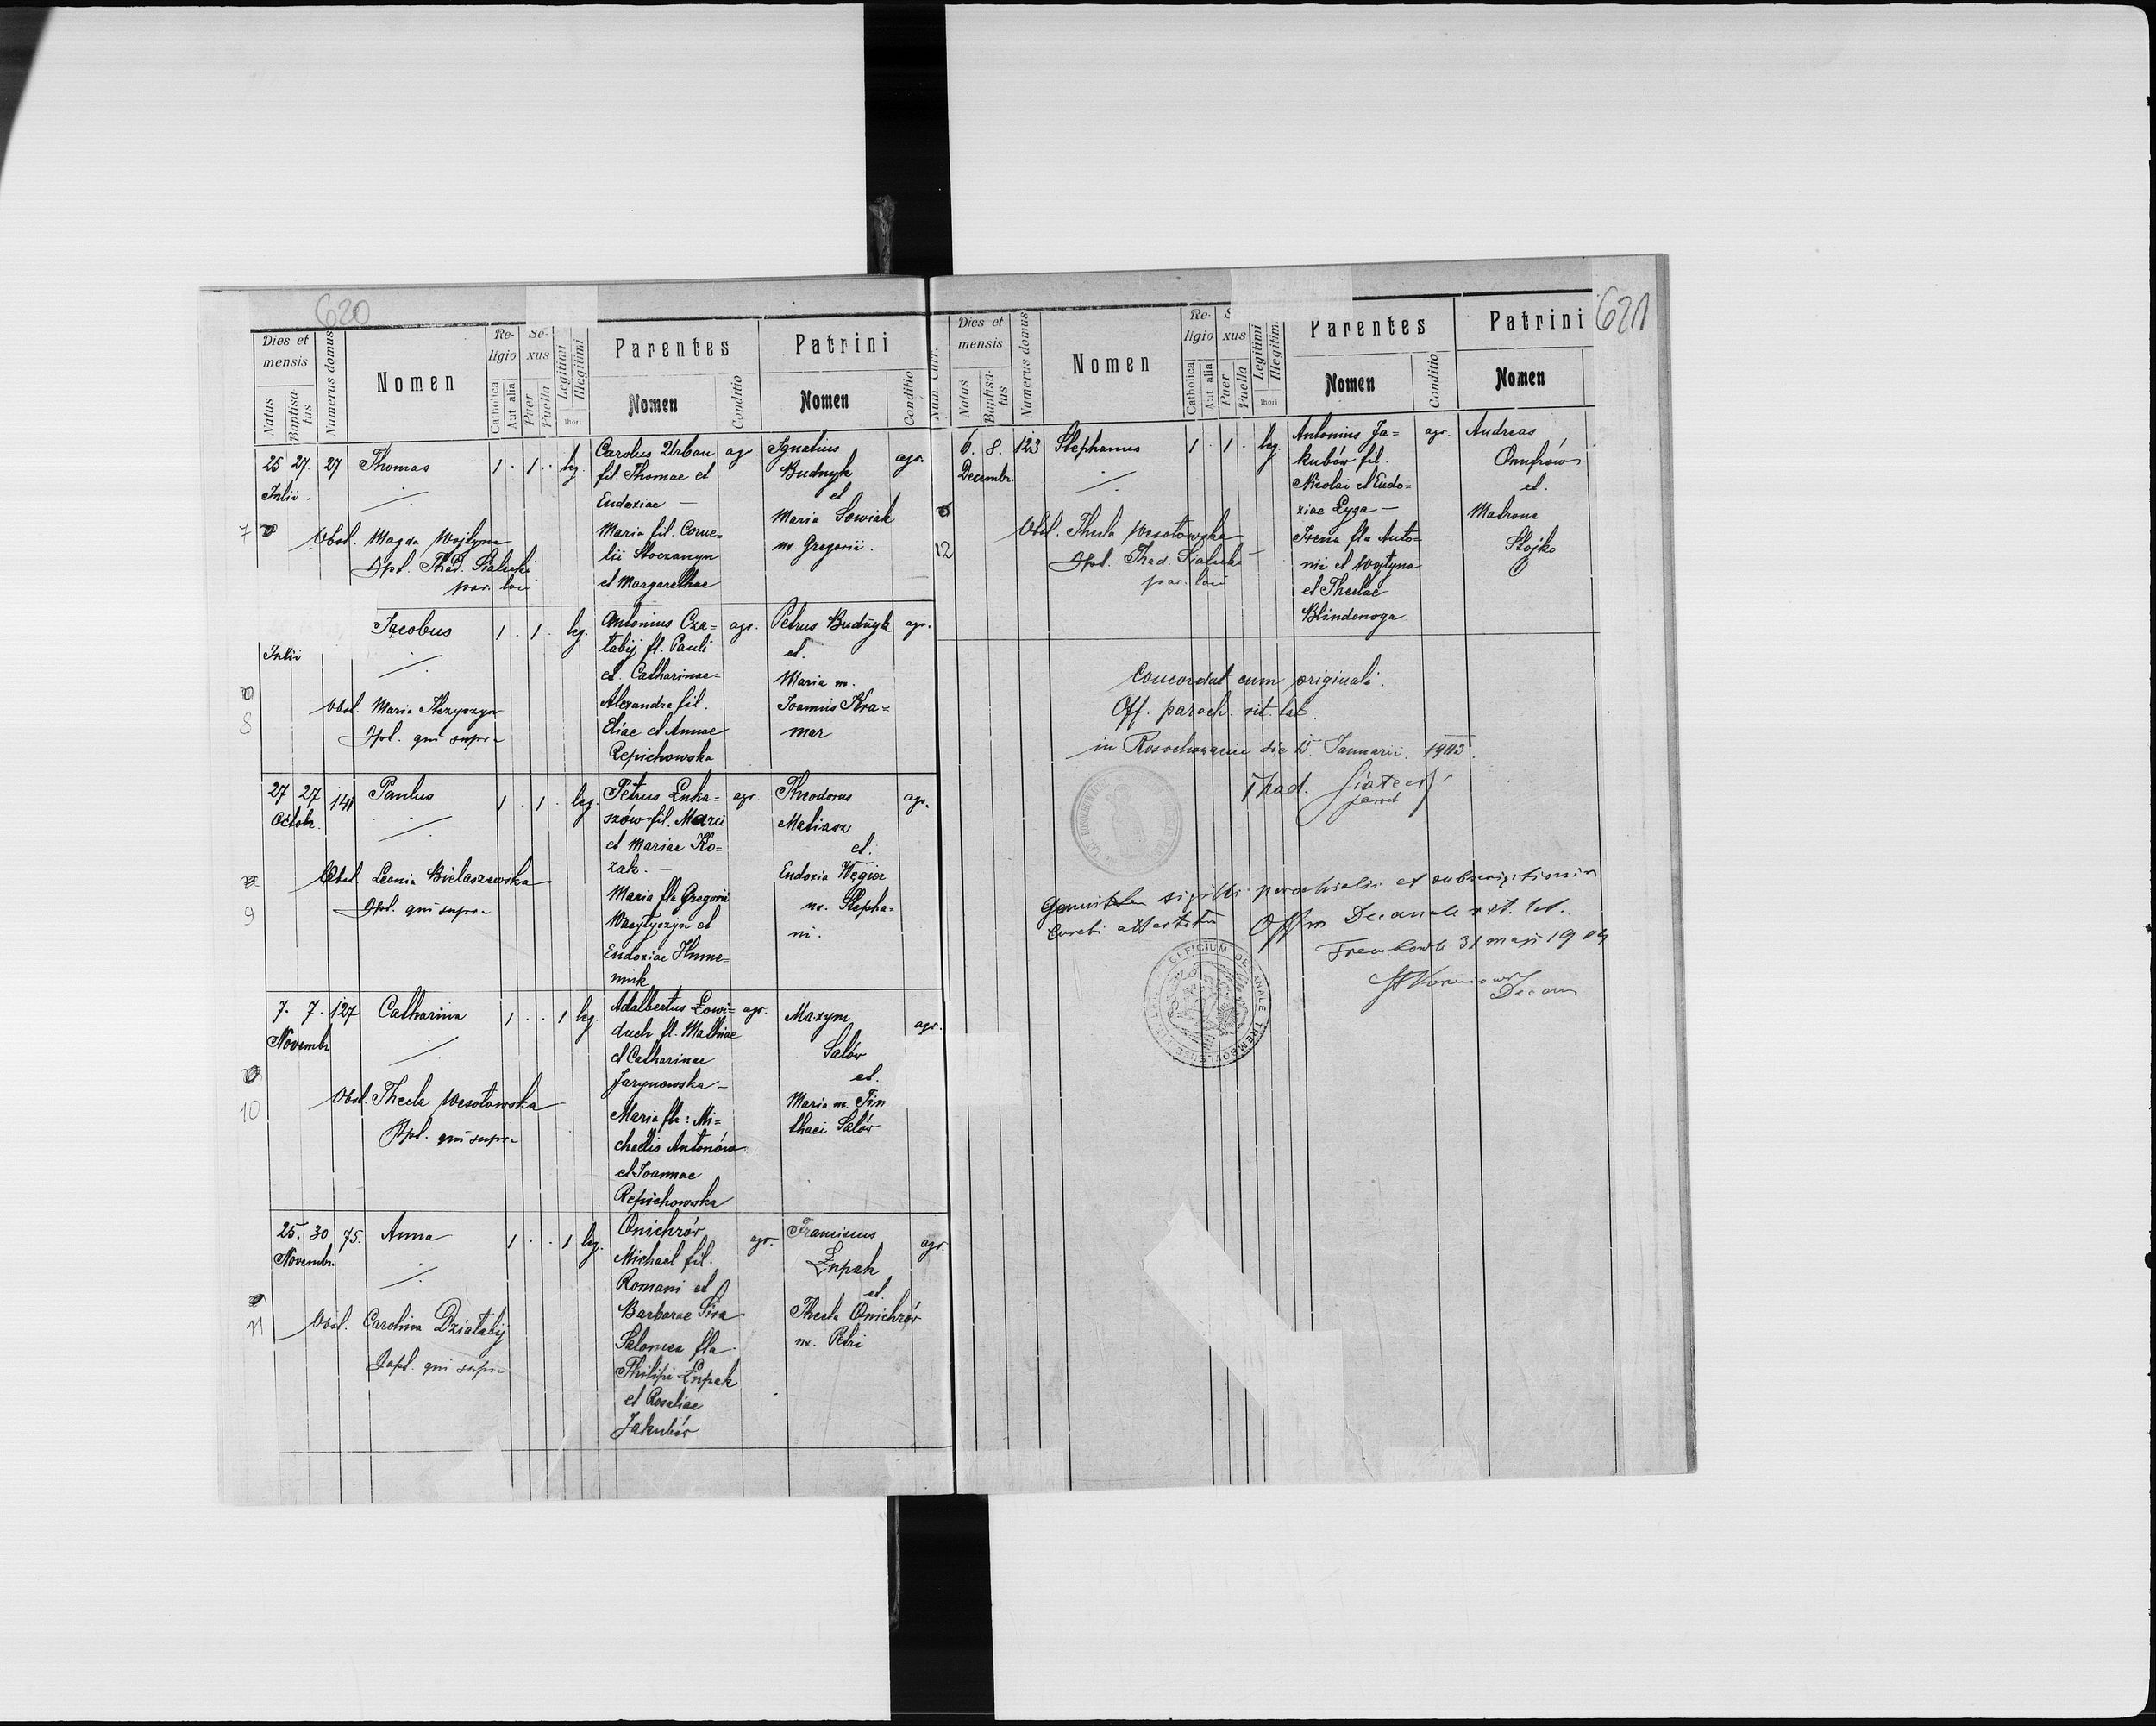 620
Dies et mensis
Natus
Baptisatus
Numerus domus
Nomen
Religio
Catholica
Aut alia
Sexus
Puer
Puella
Legitimi
Illegitimi
thori
Parentes
Nomen
Conditio
Patrini
Nomen
Conditio
7
25 27. 27 Thomas 1 . 1 . . leg.
Julii.
Obst. Magda Wojtyna
Bpt. Thad. Siatecki
par. loci
Carolus Urban agr.
fil. Thomae et
Eudoxiae —
Maria fil. Corne=
lii Stoczanyn
et Margarethae
Ignatius agr.
Budnyk
et
Maria Sowiak
ux. Gregorii.
8
Jacobus 1 . 1 . leg.
Julii
Obst. Maria
Bpt. qui supra
Antonius Cza= agr.
tabij fl. Pauli
et Catharinae
Alexandra fil.
Eliae et Annae
Repichowska
Petrus Budnyk agr.
et.
Maria ux.
Joannis Kra=
mar
9
27 27 141 Paulus 1 . 1 . leg.
Octobr.
Obst. Leonia Bielaszewska
Bpt. qui supra
Petrus Łuka= agr.
szów fil. Marci
et Mariae Ko=
zak. —
Maria fla Gregorii
Wasytyszyn et
Eudoxiae Hume=
niuk
Theodorus agr.
Matiasz
et.
Eudoxia Węgier
ux. Stepha=
ni.
10
7. 7. 127 Catharina 1 . . 1 leg.
Novembr.
Obst. Thecla Wesołowska
Bpt. qui supra
Adalbertus Łowi= agr.
duch fl. Mathiae
et Catharinae
Jarynowska —
Maria fla: Mi=
chaelis Antonów
et Joannae
Repichowska
Maxym agr.
Salów
et.
Maria ux. Tim
thaei Salów
11
25. 30 75. Anna 1 . . 1 leg.
Novembr.
Obst. Carolina Działabij
Bapt. qui supra
Onichrów agr.
Michael fil.
Romani et
Barbarae
Salomea fla
Philipi Łupak
et Rosaliae
Jakubów
Franciscus agr.
Łupak
et.
Thecla Onichrów
ux. Petri
621
Num. Curr.
Dies et mensis
Natus
Baptisatus
Numerus domus
Nomen
Religio
Catholica
Aut alia
xus
Puer
Puella
Legitimi
Illegitimi
thori
Parentes
Nomen
Conditio
Patrini
Nomen
12
6. 8. 123 Stephanus 1 . 1 . leg.
Decembr.
Obst. Thecla Wesołowska
Bpt. Thad. Siatecki
par. loci
Antonius Ja= agr.
kubów fil.
Nicolai et Eudo=
xiae Łyga —
Irena fla Anto=
nii et Wojtyna
et Theclae
Blindonoga
Andreas
Onufrów
et.
Matrona
Stojko
Concordat cum originali.
Off. paroch. rit. lat.
in Rosochowaciec die 15 Januarii 1903.
Thad. Siatecki
paroch
sigilli parochialis et subscriptionis
Off Decanale rit. lat.
31 maji 1904
Decan
OFFICIUM DECANALE TREMBOVLENSE